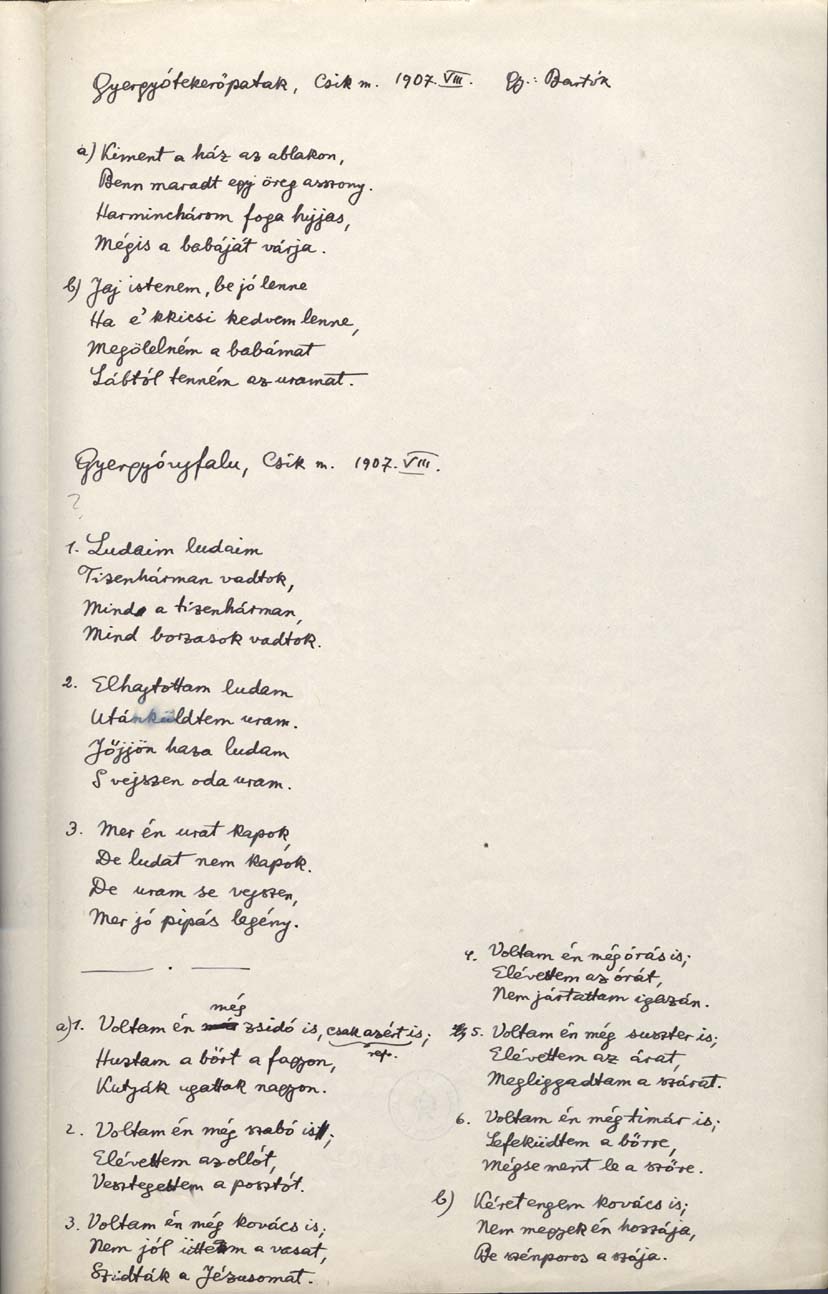 Gyergyótekerőpatak, Csik m. 1907. VIII. Gy.: Bartók
a) Kiment a ház az ablakon,
Benn maradt egy öreg asszony.
Harminchárom foga hijjas,
Mégis a babáját várja.
b) Jaj istenem, be jó lenne
Ha e' kkicsi kedvem lenne,
Megölelném a babámat
Lábtól tenném az uramat.
Gyergyóujfalu, Csik m. 1907. VIII.
?
1. Ludaim ludaim
Tizenhárman vadtok,
Mind a tizenhárman,
Mind borzasok vadtok.
2. Elhajtottam ludam
Utánküldtem uram.
Jőjjön haza ludam
S vejszen oda uram.
3. Mer én urat kapok,
De ludat nem kapok.
De uram se vejszen,
Mer jó pipás legény.
a) 1. Voltam én még zsidó is, csak azért is;
rep.
Huztam a bőrt a fagyon,
Kutyák ugattak nagyon.
2. Voltam én még szabó is;
Elévettem az ollót,
Vesztegettem a posztót.
3. Voltam én még kovács is;
Nem jól üttem a vasat,
Szidták a Jézusomat.
4. Voltam én még órás is;
Elévettem az órát,
Nem jártattam igazán.
5. Voltam én még suszter is;
Elévettem az árat,
Megliggadtam a szárat.
6. Voltam én még timár is;
Lefeküdtem a bőrre,
Mégse ment le a szőre.
b) Kéret engem kovács is;
Nem megyek én hozzája,
Be szénporos a szája.